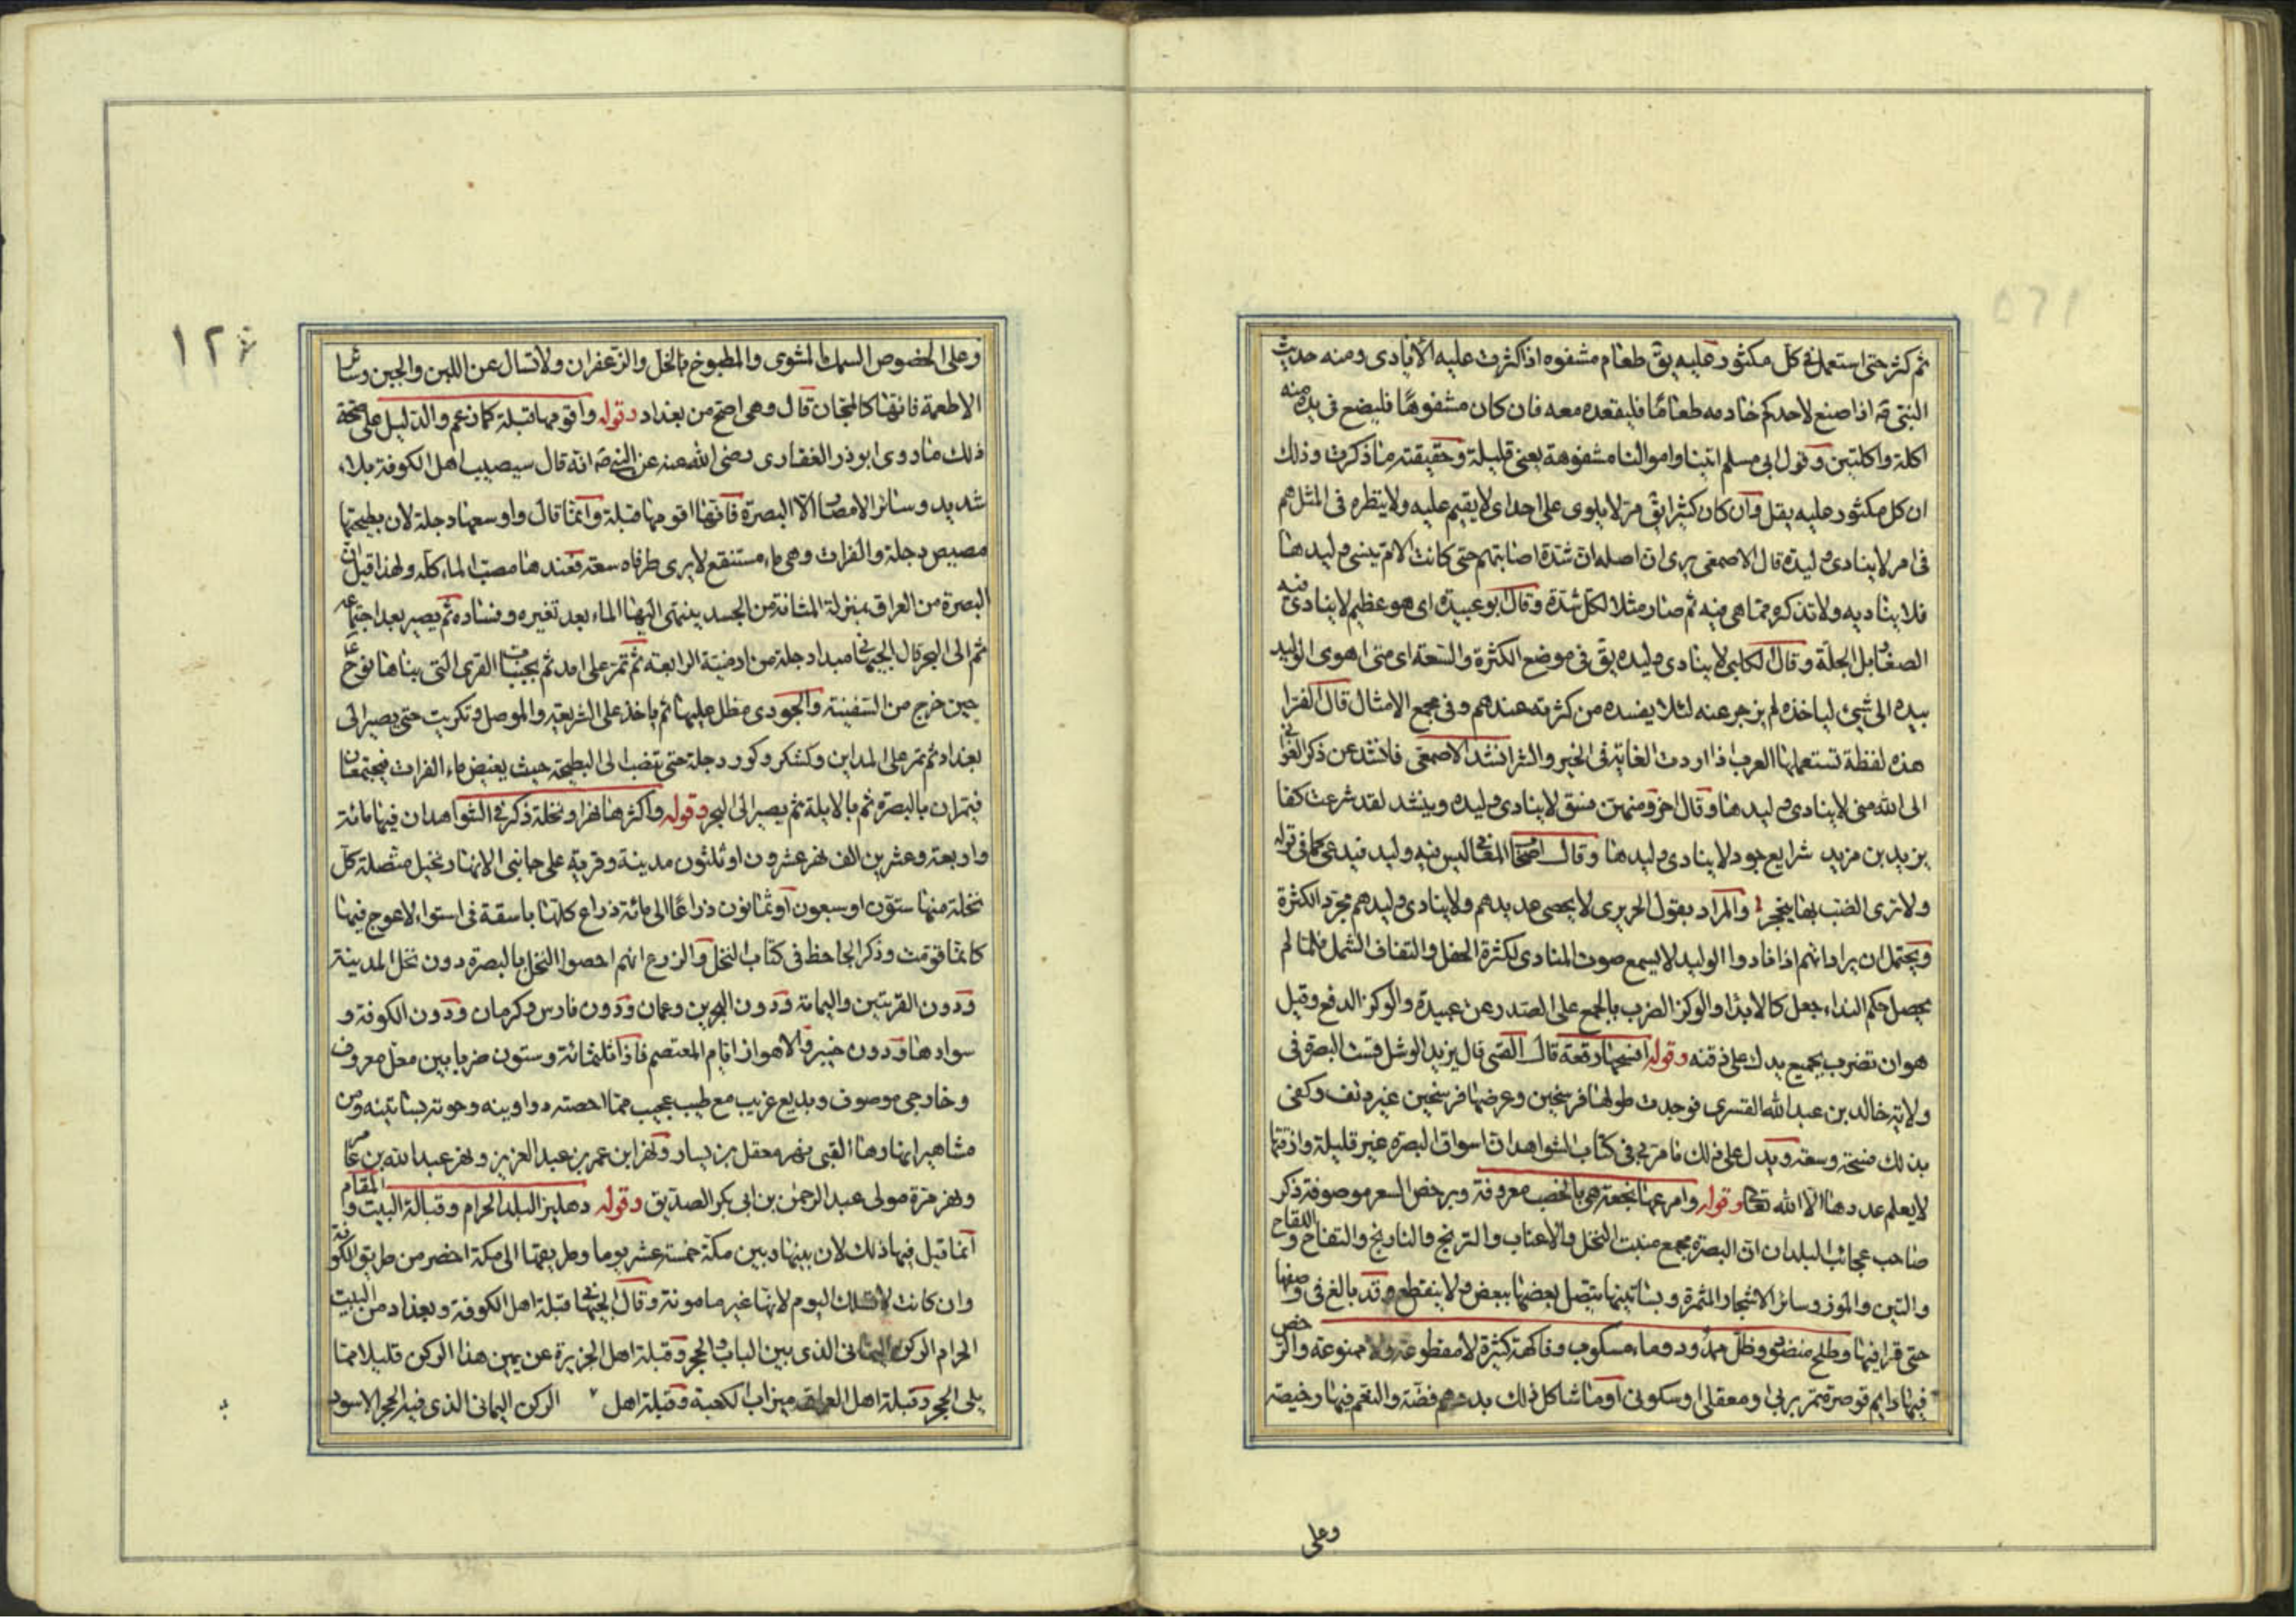 ثم كثر حتى استعمل فى كل مكثور عليه يق طعام مشفوه اذا كثرت عليه الايادى ومنه حديث
النبى صه اذا صنع لاحدكم خادمه طعامًا فليقعده معه فان كان مشفوهًا فليضع فى يده منه
اكلة واكلتين وقول ابى مسلم اتينا واموالنا مشفوهة يعنى قليلة وحقيقته ما ذكرت وذلك
ان كل مكثور عليه يقل وان كان كثيرا يق مر لا يلوى على احد اى لا يقيم عليه ولا ينظره فى المثل هم
فى امر لا ينادى وليده قال الاصمعى يرى ان اصله ان شدة اصابتهم حتى كانت الام تنسى وليدها
فلا يناديه ولا تذكره مما هى فيه ثم صار مثلا لكل شدة وقال ابو عبيدة اى هو عظيم لا ينادى فيه
الصغار بل الجلة وقال الكلبى لا ينادى وليده يق فى موضع الكثرة والسعة اى متى اهوى الوليد
بيده الى شيئ لياخذه لم يزجر عنه لئلا يفسده من كثرته عندهم وفى مجمع الامثال قال الفرا
هذه لفظة تستعملها العرب اذا اردت الغاية فى الخير والشر انشد الاصمعى فانشد عن ذكر الغوانى
الى الله منى لا ينادى وليدها وقال اخر ومنهن فسق لا ينادى وليده وينشد لقد شرعت كفا
يزيد بن مزيد شرايع جود لا ينادى وليدها وقال اصحاب المعانى اى ليس فيه وليد فيدعى كما فى قوله
ولا ترى الضب بها ينجحر والمراد بقول الحريرى لا يحصى عديدهم ولا ينادى وليدهم مجرد الكثرة
ويحتمل ان يراد انهم اذا نادوا الوليد لا يسمع صوت المنادى لكثرة الحفل والتفاف الشمل فلما لم
يحصل حكم النداء جعل كالابذا والوكز الضرب بالجمع على الصدر عن عبيدة والوكز الدفع وقيل
هو ان تضرب بجميع يدك على ذقنه وقوله افسحها رقعة قال القبى قال يزيد الرشك قست البصرة فى
ولاية خالد بن عبد الله القسرى فوجدت طولها فرسخين وعرضها فرسخين غير دنف وكفى
بذلك فسحة وسعة ويدل على ذلك ما مر بى فى كتاب الشواهد ان اسواق البصره غير قليلة وازقتها
لا يعلم عددها الا الله تعا وقوله وامرعها نجعة هى بالخصب معروفة وبرخص السعر موصوفة ذكر
صاحب عجائب البلدان ان البصره مجمع منبت النخل والاعناب والترنج والنارنج والتفاح واللقاح
والتين والموز وسائر الاشجار المثمرة وبساتينها يتصل بعضها ببعض ولا ينقطع وقد بالغ فى وصفها
حتى قرا فيها وطلح منضود وظل ممدود وماء مسكوب وفاكهة كثيرة لا مقطوعة ولا ممنوعة والرخص
فيها دايم قوصرة تمر برنى او معقلى او سكونى او ما شاكل ذلك بدرهم فضة والنعم فيها رخيصة
وعلى
وعلى الخصوص السمك المشوى والمطبوخ بالخل والزعفران ولا تسال عن اللبن والجبن وسائر
الاطعمة فانها كالمجان قال وهى اصح من بغداد وقوله واقومها قبلة كما زعم والدليل على صحة
ذلك ما روى ابو ذر الغفارى رضى الله عنه عن النبى صه انه قال سيصيب اهل الكوفة بلاء
شديد وسائر الامصار الا البصرة فانها اقومها قبلة وانما قال واوسعها دجلة لان بطيحتها
مصيص دجلة والفرات وهى ماء مستنقع لا يرى طرفاه سعة فعندها مصب الماء كله ولهذا قيل ان
البصرة من العراق بمنزلة المثانة من الجسد ينتهى اليها الماء بعد تغيره وفساده ثم يصير بعد اجتماعه
ثم الى البحر قال الجيهانى مبدا دجلة من ارمنية الرابعة ثم تمر على امد ثم بجنبات القرى التى بناها نوح ع
حين خرج من السفينة والجودى مظل عليها ثم ياخذ على الشريعة والموصل وتكريت حتى يصير الى
بغداد ثم تمر على المداين وكشكر وكور دجلة حتى تقضب الى البطيحة حيث يغيض ماء الفرات فيجتمعان
فيمران بالبصرة ثم بالابلة ثم يصير الى البحر وقوله واكثرها نهرا ونخلة ذكر فى الشواهد ان فيها مائة
واربعة وعشرين الف نهر عشرون او ثلثون مدينة وقرية على جانبى الانهار نخيل متصلة كل
نخلة منها ستون او سبعون او ثمانون ذراعًا الى مائة ذراع كلها باسقة فى استواء لا عوج فيها
كانما قومت وذكر الجاحظ فى كتاب النخل والزرع انهم احصوا النخل بالبصرة دون نخل المدينة
ودون القريتين واليمامة ودون البحرين وعمان ودون فارس وكرمان ودون الكوفة و
سوادها ودون خيبر والاهواز ايام المعتصم فاذا ثلثمائة وستون ضربا بين معقل معروف
وخارجى موصوف وبديع غريب مع طيب عجيب مما احصته دواوينه وحوته بساتينه ومن
مشاهير انهارها القبى نهر معقل بن يسار ونهر ابن عمر بن عبد العزيز ونهر عبد الله بن عامر
ونهر مرة مولى عبد الرحمن بن ابى بكر الصديق وقوله دهليز البلد الحرام وقبالة البيت والمقام
انما قيل فيها ذلك لان بينها وبين مكة خمسة عشر يوما وطريقها الى مكة اخضر من طريق الكوفة
وان كانت لا تسلك اليوم لانها غير مامونة وقال الجيهانى قبلة اهل الكوفة وبغداد من البيت
الحرام الركن اليمانى الذى بين الباب والحجر وقبلة اهل الجزيرة عن يمين هذا الركن قليلا مما
يلى الحجر وقبلة اهل العراق ميزاب الكعبة وقبلة اهل الركن اليمانى الذى فيه الحجر الاسود